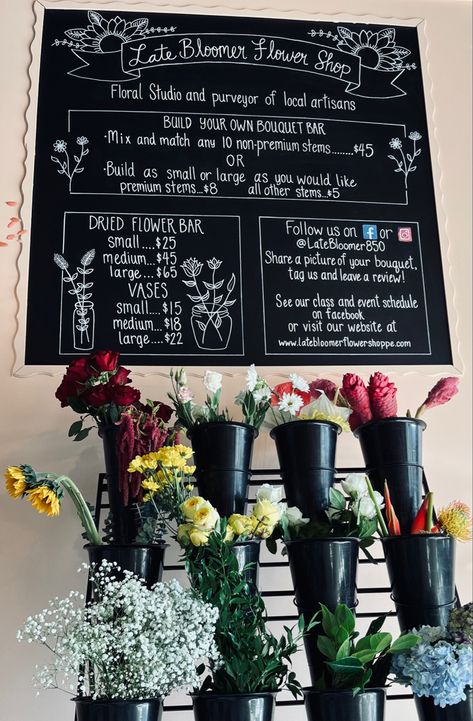 Late Bloomer Flower Shop
Floral Studio and purveyor of local artisans
BUILD YOUR OWN BOUQUET BAR
•Mix and match any 10 non-premium stems........$45
OR
•Build as small or large as you would like
premium stems...$8 all other stems...$5
DRIED FLOWER BAR
small....$25
medium....$45
large....$65
VASES
small....$15
medium....$18
large....$22
Follow us on f or
@LateBloomer850
Share a picture of your bouquet,
tag us and leave a review!
See our class and event schedule
on facebook
or visit our website at
www.latebloomerflowershoppe.com